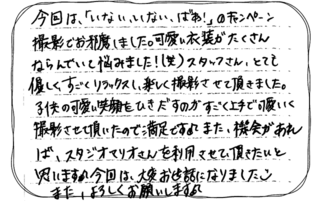 今回は、「いないいないばあ！」のキャンペーン
撮影でお邪魔しました。可愛い衣装がたくさん
ならんでいて悩みました！(笑)スタッフさん、とても
優しく、すごくリラックスし、楽しく撮影させて頂きました。
子供の可愛い笑顔をひきだすのがすごく上手で可愛いく
撮影させて頂いたので満足です♪また、機会があれ
ば、スタジオマリオさんを利用させて頂きたいと
思います♪今回は、大変お世話になりました
また、よろしくお願いします♪